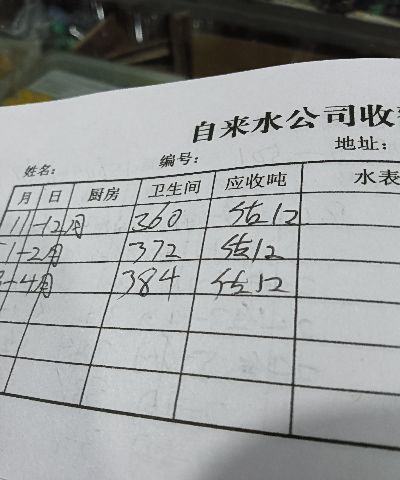 自来水公司收
姓名： 编号： 地址：
月 日 厨房 卫生间 应收吨 水表
11-12月 360 估12
1-2月 372 估12
3-4月 384 估12